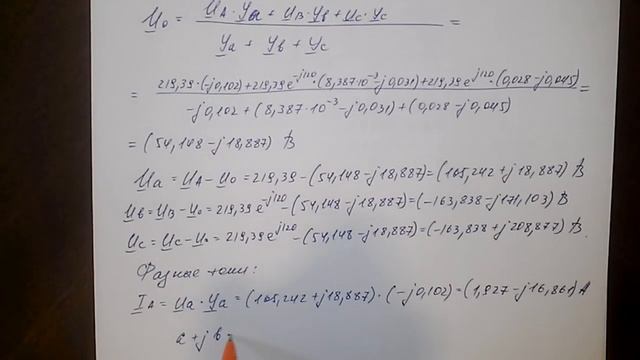 U₀ = U_A · Y_a + U_B · Y_в + U_C · Y_c / Y_a + Y_в + Y_c =
= 219,39 · (-j0,102) + 219,39 e^-j120 · (8,387·10^-3 - j0,031) + 219,39 e^j120 · (0,028 - j0,045) / -j0,102 + (8,387·10^-3 - j0,031) + (0,028 - j0,045) =
= (54,148 - j18,887) В
U_a = U_A - U_0 = 219,39 - (54,148 - j18,887) = (165,242 + j18,887) В
U_в = U_B - U_0 = 219,39 e^-j120 - (54,148 - j18,887) = (-163,838 - j171,103) В
U_c = U_C - U_0 = 219,39 e^j120 - (54,148 - j18,887) = (-163,838 + j208,877) В
Фазные токи:
I_A = U_a · Y_a = (165,242 + j18,887) · (-j0,102) = (1,927 - j16,861) А
a + j в =